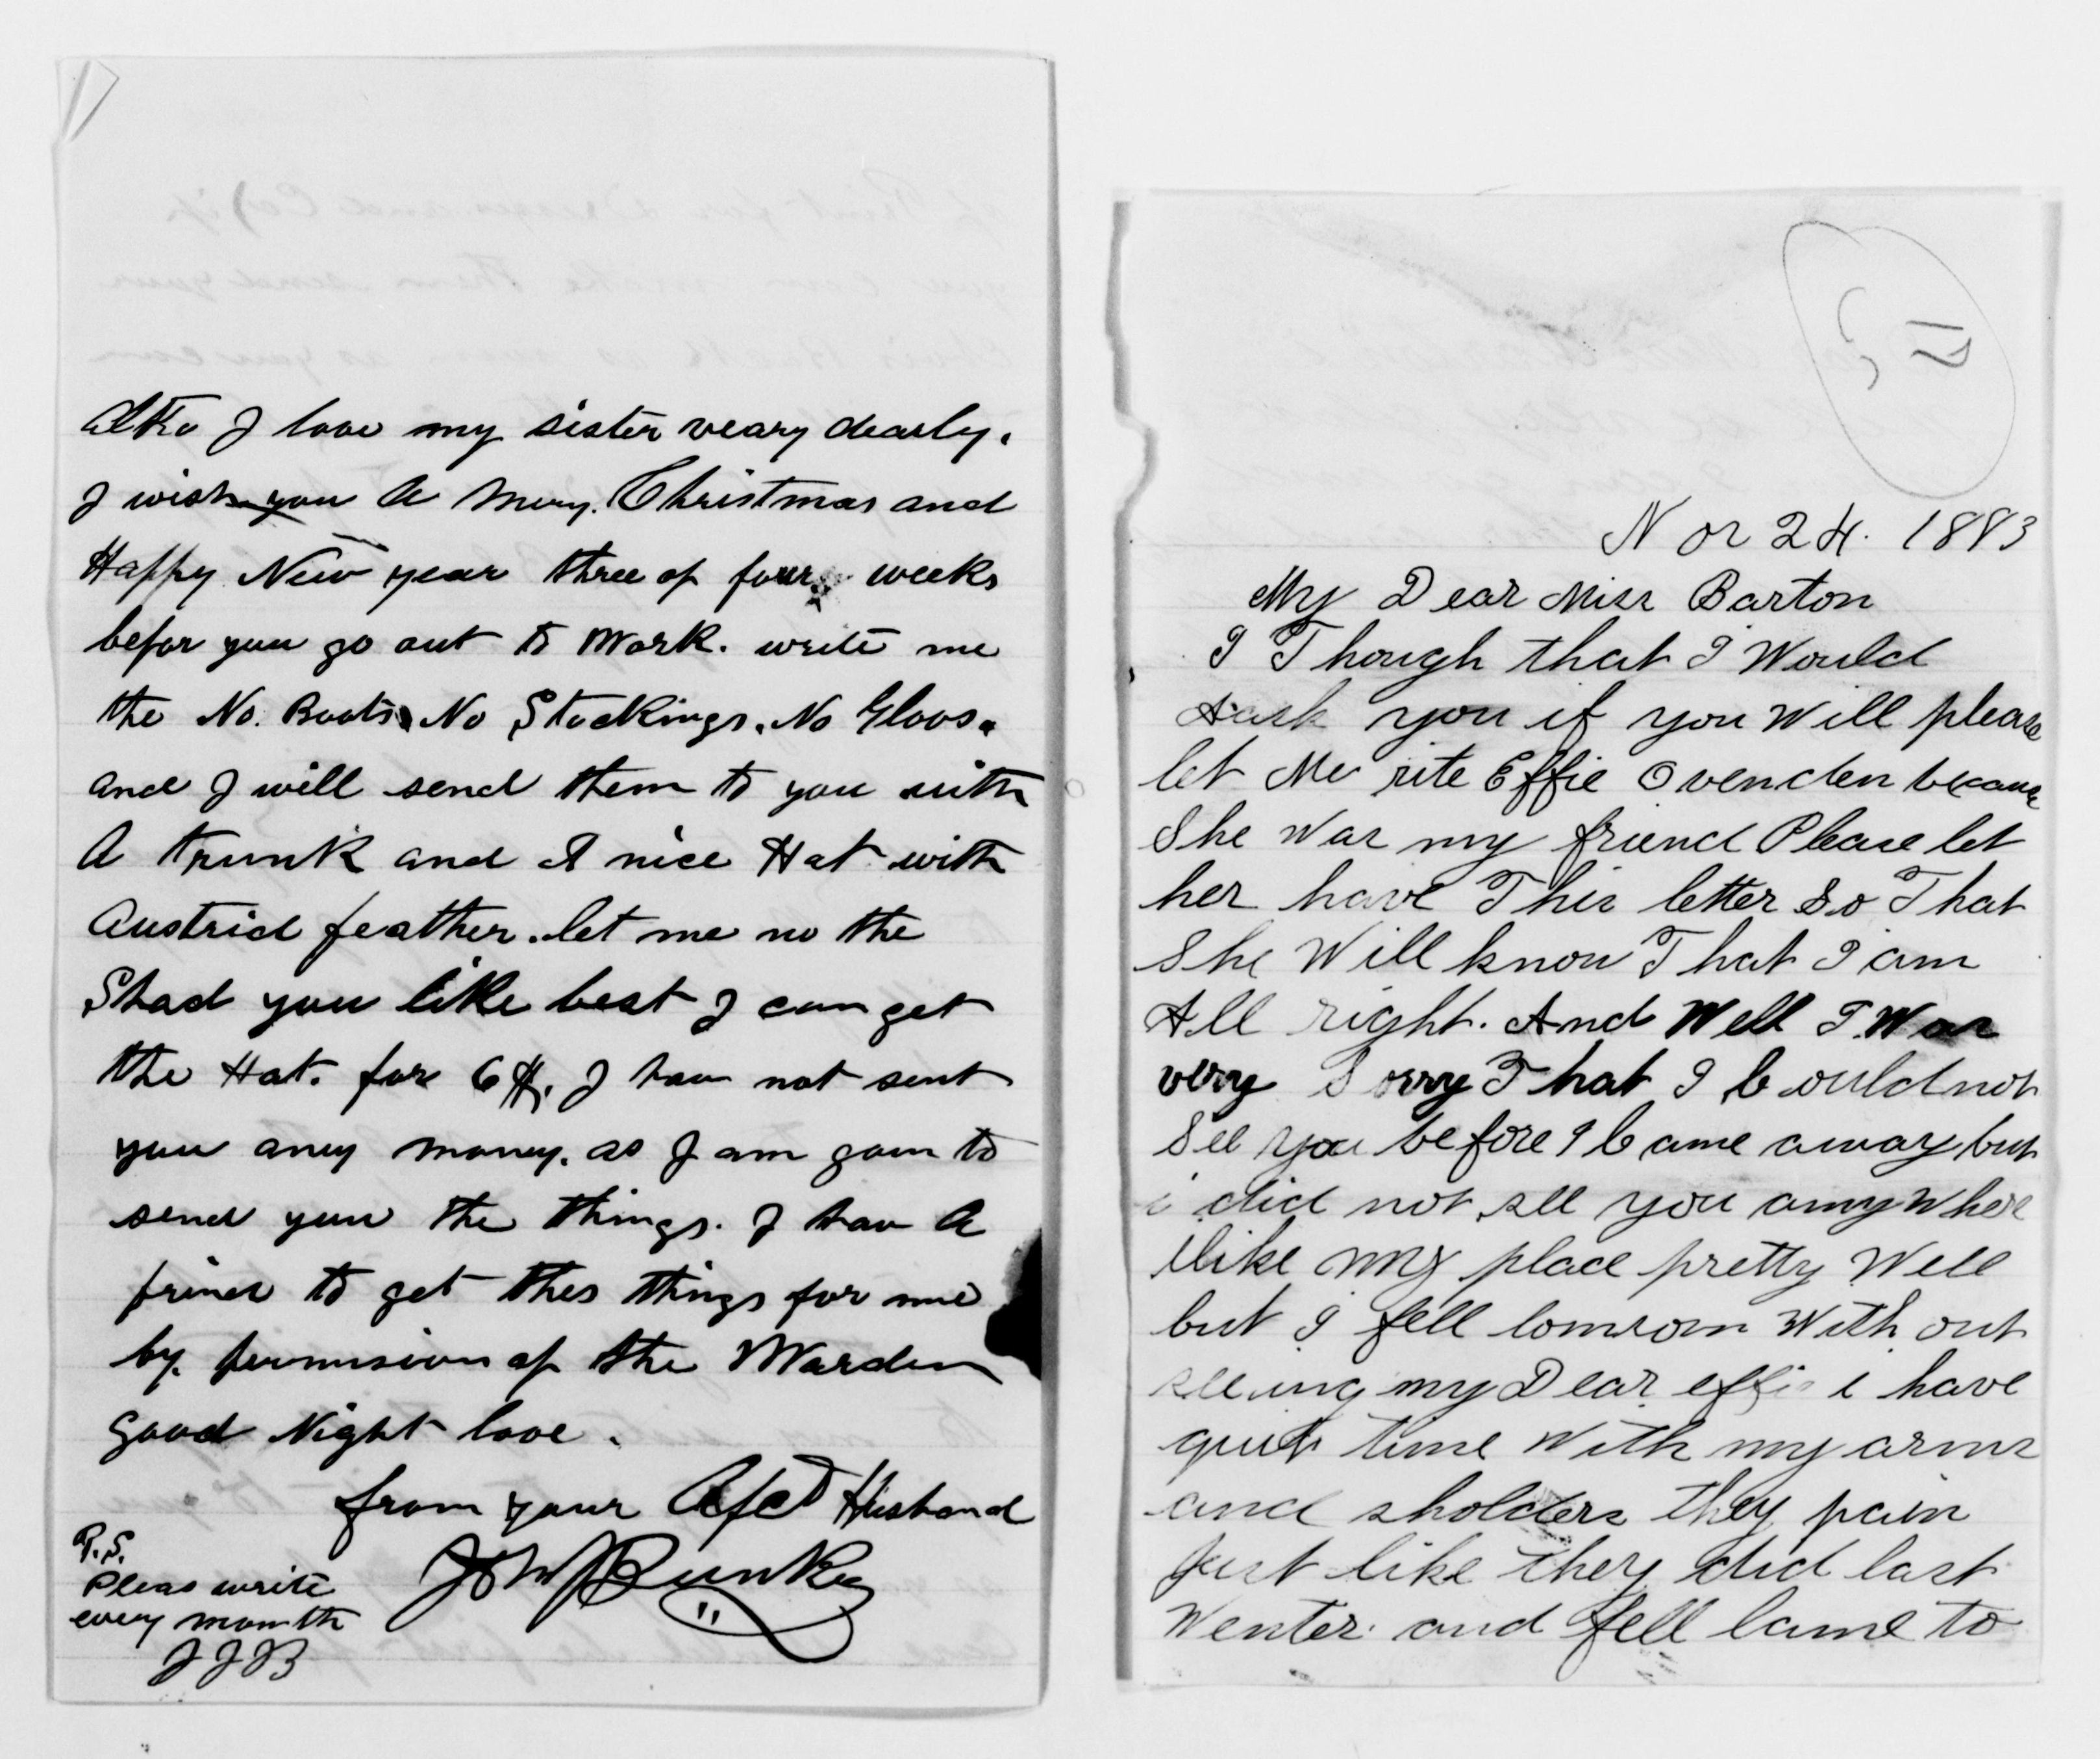 altho I love my sister veary dearly.
I wish you A Mery. Christmas and
Happy New year three of four weeks
befor you go out to Work. write me
the No. Boots No Stockings. No Gloos.
and I will send them to you with
A trunk and A nice Hat with
Austrid feather. let me no the
Shad you like best I can get
the Hat. for 6$. I hav not sent
you aney money. as I am goin to
send you the things. I hav A
frind to get thes things for me
by permision of the Warden
Good Night love.
from your Afct Husband
John J Bunke
P.S.
Pleas write
every month
JJB
Nov 24. 1883
My Dear Miss Barton
I Though that I Would
Aask you if you Will please
let Me rite Effie Ovenden because
She Was my friend Please let
her have This letter So That
She Will know That I am
All right. And Well I Was
very Sorry That I Could not
See you before I Came away but
i did not see you any Where
ilike my place pretty Well
but I fell lomsom With out
seeing my Dear effie i have
quit time With my arms
and sholders they pain
Just like they did last
Wenter. and fell lame to